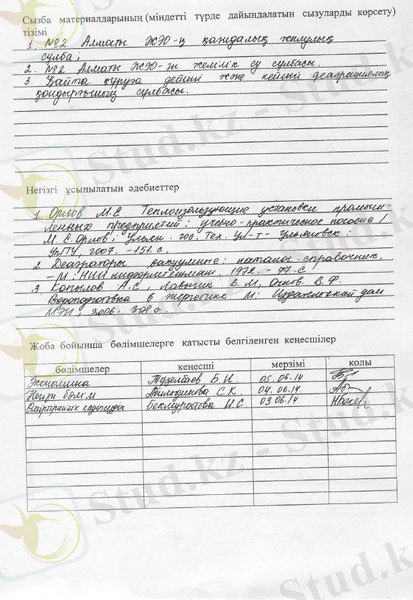 Сызба материалдарының (міндетті түрде дайындалатын сызуларды көрсету)
тізімі
1. №2 Алматы ЖЭО-ң қағидалық жылулық
сулба;
2. №2 Алматы ЖЭО-ң желілік су сулбасы.
3 Қайта құруға дейінгі және кейінгі деаэрациялық
қондырғының сулбасы.
Негізгі ұсынылатын әдебиеттер
1 Орлов М.Е Теплоизолирующие установки промыш-
ленных предприятий: учебно-практическое пособие/
М.Е.Орлов; Ульян. гос. Тех. ун-т- Ульяновск:
УлГТУ, 2007. -151 с.
2 Деаэраторы вакуумные: каталог-справочник.
- М: НИИинформтяжмаш, 1972. - с.
3 Копылов А.С, Лавыгин В.М, Очков В.Ф.
Водоподготовка в энергетике М: Издательский дом
МЭИ, 2006. с.
Жоба бойынша бөлімшелерге қатысты белгіленген кеңесшілер
бөлімшелер кеңесші мерзімі қолы
Экономика Тузелбаев Б.И 05.06.14
Негізгі бөлім С.К. 04.06.14
Өміртіршілік қауіпсіздігі Бекмуратова Н.С. 03.06.14
Stud.kz - Stud.kz
Stud.kz - Stud.kz
Stud.kz - Stud.kz